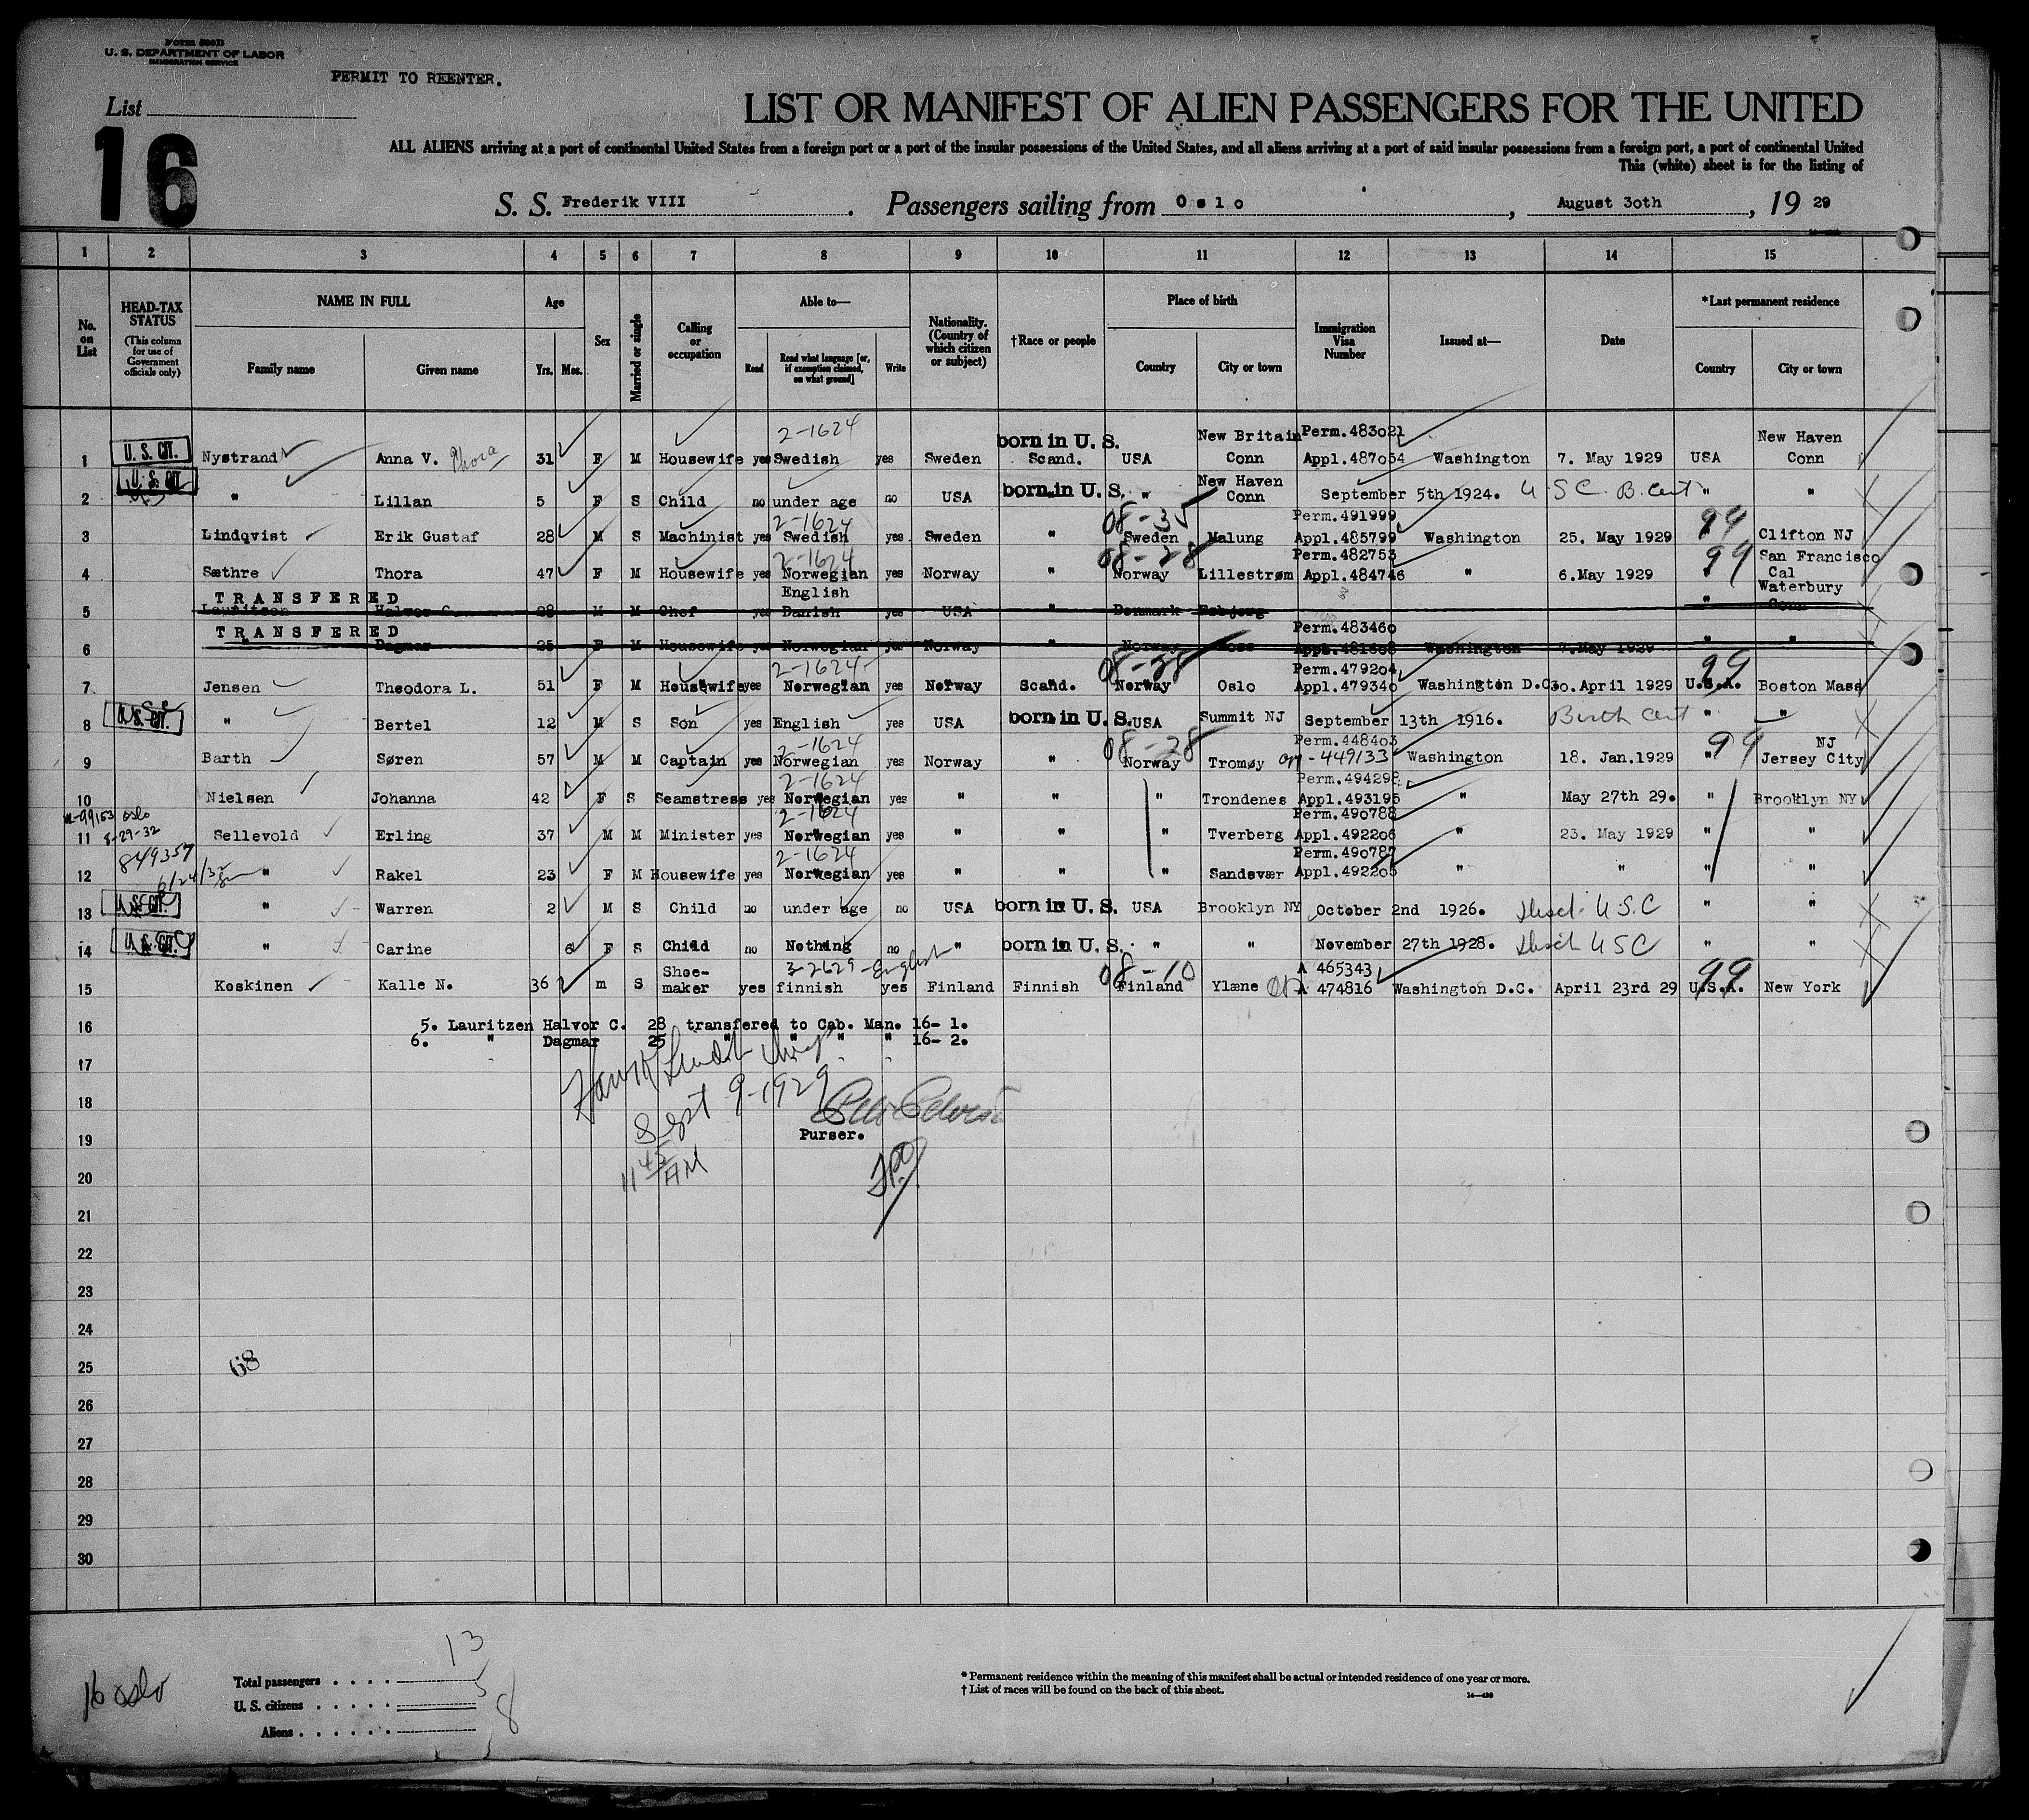 Form 500B
U. S. DEPARTMENT OF LABOR
IMMIGRATION SERVICE
PERMIT TO REENTER.
List
16
LIST OR MANIFEST OF ALIEN PASSENGERS FOR THE UNITED
ALL ALIENS arriving at a port of continental United States from a foreign port or a port of the insular possessions of the United States, and all aliens arriving at a port of said insular possessions from a foreign port, a port of continental United
This (white) sheet is for the listing of
S. S. Frederik VIII . Passengers sailing from Oslo , August 30th , 19 29
1 2 3 4 5 6 7 8 9 10 11 12 13 14 15
No. on List
HEAD-TAX STATUS (This column for use of Government officials only)
NAME IN FULL Family name Given name
Age Yrs. Mos.
Sex
Married or single
Calling or occupation
Able to— Read Read what language [or, if exemption claimed, on what ground] Write
Nationality. (Country of which citizen or subject)
†Race or people
Place of birth Country City or town
Immigration Visa Number
Issued at—
Date
*Last permanent residence Country City or town
2-1624 born in U. S. New Britain Perm.483021 New Haven
1 U. S. CIT. Nystrand Anna V. Thora 31 F M Housewife yes Swedish yes Sweden Scand. USA Conn Appl.487054 Washington 7. May 1929 USA Conn
U. S. CIT born in U. S. New Haven
2 " Lillan 5 F S Child no under age no USA " " Conn September 5th 1924. U S C. B. Cert " "
2-1624 08-35 Perm.491999 99
3 Lindqvist Erik Gustaf 28 M S Machinist yes Swedish yes Sweden " Sweden Malung Appl.485799 Washington 25. May 1929 Clifton NJ
2-1624 08-28 Perm.482753 99 San Francisco
4 Sæthre Thora 47 F M Housewife yes Norwegian yes Norway " Norway Lillestrøm Appl.484746 " 6.May 1929 " Cal
TRANSFERED English Waterbury
5 Lauritzen Halvor C. 28 M M Chef yes Danish yes USA " Denmark Esbjerg " Conn
TRANSFERED Perm.483460
6 " Dagmar 25 F M Housewife yes Norwegian yes Norway " Norway Moss Appl.481608 Washington 7.May 1929 " "
2-1624 08-35 Perm.479204 99
7 Jensen Theodora L. 51 F M Housewife yes Norwegian yes Norway Scand. Norway Oslo Appl.479340 Washington D.C. 30.April 1929 U.S.A. Boston Mass
8 U.S. CIT. " Bertel 12 M S Son yes English yes USA born in U. S. USA Summit NJ September 13th 1916. Birth Cert " "
2-1624 08-28 Perm.448403 99 NJ
9 Barth Søren 57 M M Captain yes Norwegian yes Norway " Norway Tromøy -449133 Washington 18. Jan.1929 " Jersey City
2-1624 Perm.494298
10 Nielsen Johanna 42 F S Seamstress yes Norwegian yes " " " Trondenes Appl.493195 " May 27th 29. " Brooklyn NY
oslo 2-1624 Perm.490788
11 8-29-32 Sellevold Erling 37 M M Minister yes Norwegian yes " " " Tverberg Appl.492206 " 23. May 1929 " "
849357 2-1624 Perm.490787
12 " Rakel 23 F M Housewife yes Norwegian yes " " " Sandsvær Appl.492205 " " " "
13 U.S. CIT. " Warren 2 M S Child no under age no USA born in U. S. USA Brooklyn NY October 2nd 1926. U.S.C " "
14 U.S. CIT. " Carine 6 F S Child no Nothing no " born in U. S. " " November 27th 1928. USC " "
Shoe- 3-2629-English 08-10 A 465343 99
15 Koskinen Kalle N. 36 m S maker yes finnish yes Finland Finnish Finland Ylæne A 474816 Washington D.C. April 23rd 29 U.S.A. New York
16 5. Lauritzen Halvor C. 28 transfered to Cab. Man. 16- 1.
6. " Dagmar 25 " " " " 16- 2.
17
18 Sept 9-1929
19 Purser.
20 11 45 AM
21
22
23
24
25 68
26
27
28
29
30
16 oslo
Total passengers . . . . 13
U. S. citizens . . . . . 5
Aliens . . . . . . 8
* Permanent residence within the meaning of this manifest shall be actual or intended residence of one year or more.
† List of races will be found on the back of this sheet.
14—430